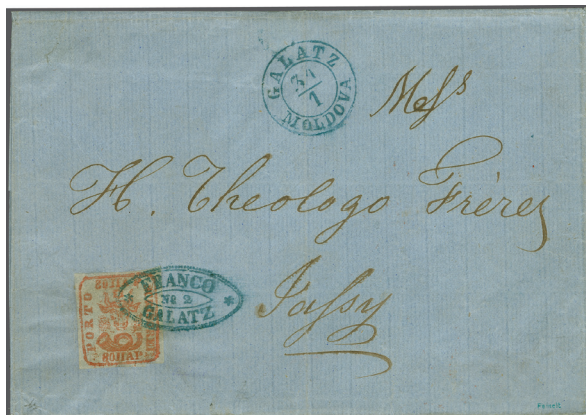 GALATZ
31
1
MOLDOVA
Messrs
H. Theologo Frères
Jassy
FRANCO
No 2
GALATZ
PORTO
80 ПАР